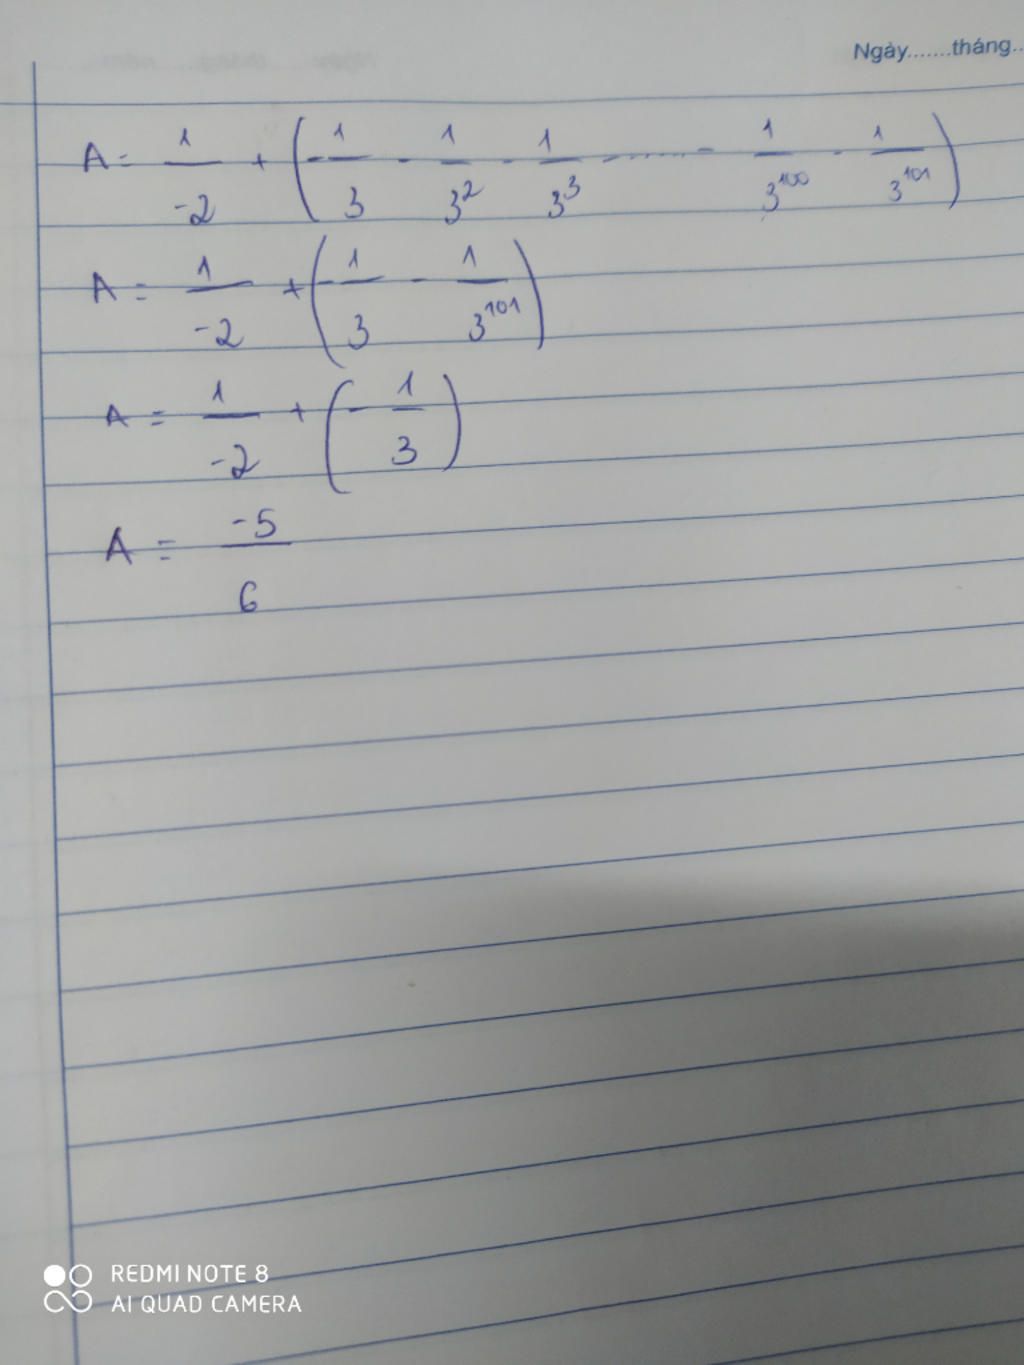 Ngày.......tháng..
A = 1/-2 + (- 1/3 - 1/3² - 1/3³ - ....... - 1/3¹⁰⁰ - 1/3¹⁰¹)
A = 1/-2 + (- 1/3 - 1/3¹⁰¹)
A = 1/-2 + (- 1/3)
A = -5/6
REDMI NOTE 8
AI QUAD CAMERA